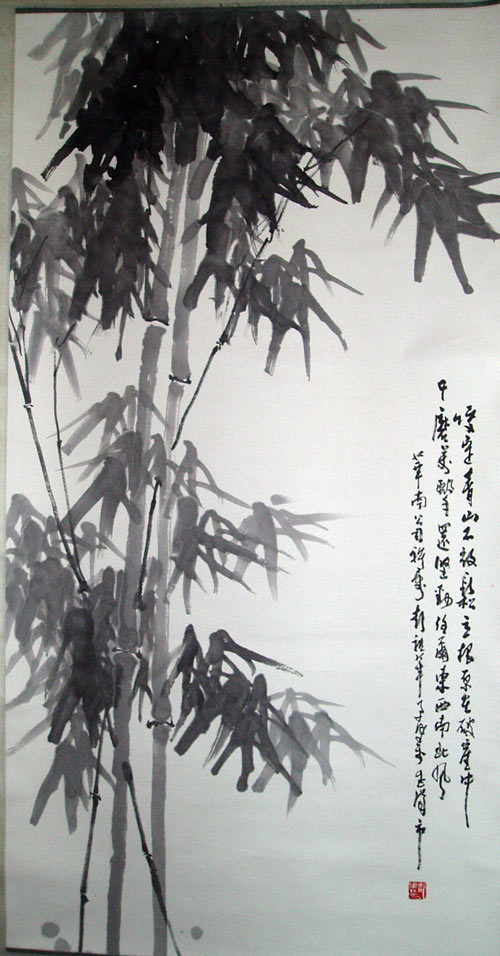 咬定青山不放鬆立根原在破崖中
千磨萬擊還堅勁任爾東西南北風
華南公司